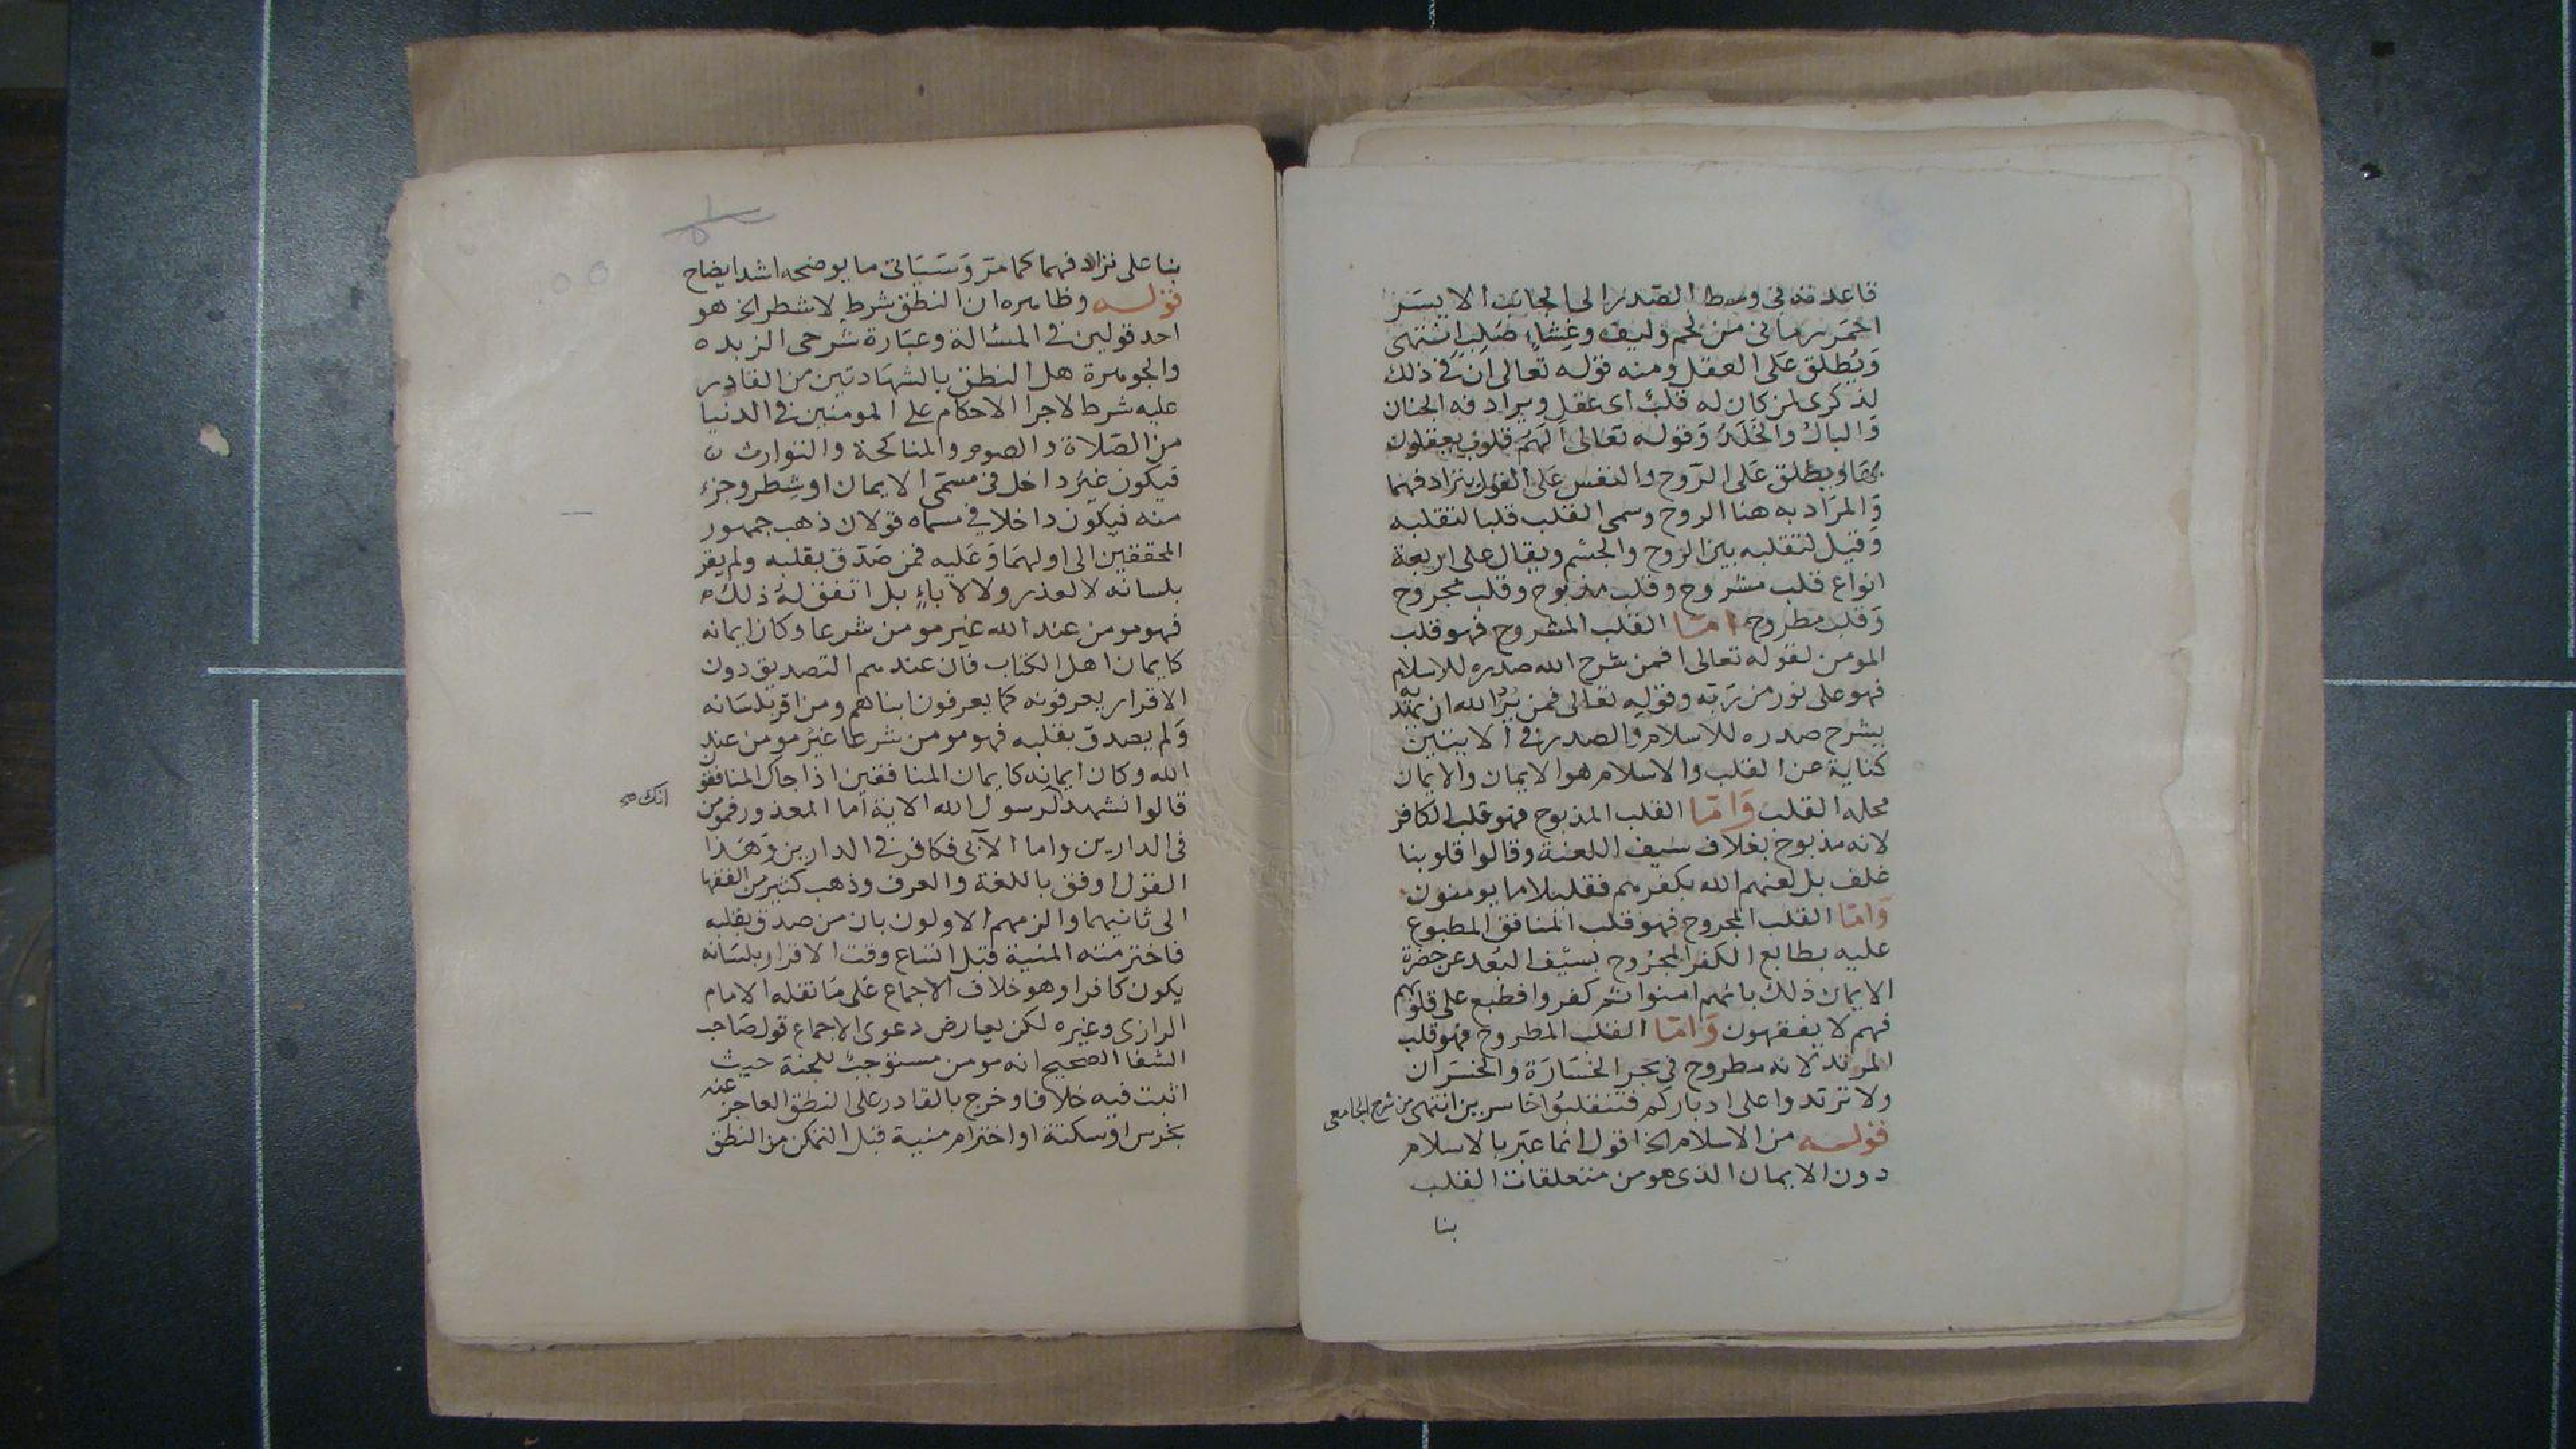 قاعدته في وسط الصدر الى الجانب الايسر
احمر رماني من لحم وليف وغشاء صلب انتهى
ويُطلق على العقل ومنه قوله تعالى ان في ذلك
لذكرى لمن كان له قلب اى عقل ويرادفه الجنان
والبال والخلد وقوله تعالى الهم قلوب يعقلون
بها ويطلق على الروح والنفس على القول بترادفهما
والمراد به هنا الروح وسمى القلب قلبا لتقلبه
وقيل لتقلبه بين الروح والجسم ويقال على اربعة
انواع قلب مشروح وقلب مذبوح وقلب مجروح
وقلب مطروح امّا القلب المشروح فهو قلب
المومن لقوله تعالى افمن شرح الله صدره للاسلام
فهو على نور من ربه وقوله تعالى فمن يُرِد الله ان يهديه
يشرح صدره للاسلام والصدر في الايتين
كناية عن القلب والاسلام هو الايمان والايمان
محله القلب وَامّا القلب المذبوح فهو قلب الكافر
لانه مذبوح بغلاف سيف اللعنة وقالوا قلوبنا
غلف بل لعنهم الله بكفرهم فقليلا ما يومنون
وَامّا القلب المجروح فهو قلب المنافق المطبوع
عليه بطابع الكفر المجروح بسيف البُعد عن حضرة
الايمان ذلك بانهم امنوا ثم كفروا فطبع على قلوبهم
فهم لا يفقهون وَامّا القلب المطروح فهو قلب
المرتد لانه مطروح في بحر الخسارة والخسران
ولا ترتدوا على ادباركم فتنقلبوا خاسرين انتهى من شرح الجامعى
قوله من الاسلام الخ اقول انما عبّر بالاسلام
دون الايمان الذى هو من متعلقات القلب
بنا
بنا على ترادفهما كما مرّ وسَيَاتى ما يوضحه اشد ايضاح
قوله وظاهره ان النطق شرط لا شطر الخ هو
احد قولين في المسئالة وعبَارة شرحى الزبده
والجوهرة هل النطق بالشهَادتين من القادر
عليه شرط لاجرا الاحكام على المومنين في الدنيا
من الصّلاة والصوم والمناكحة والتوارث
فيكون غيرَ داخل في مسمّى الايمان او شطر وجزء
منه فيكون داخلا في مسماه قولان ذهب جمهور
المحققين الى اولهمَا وَعَليه فمن صَدّق بقلبه ولم يقر
بلسانه لا لعذر ولا لاباءٍ بل اتفق لهُ ذلك
فهو مومن عند الله غير مومن شرعا وكان ايمانه
كايمان اهل الكتاب فان عندهم التصديق دون
الاقرار يعرفونه كما يعرفون ابناهم ومن اقر بلسَانه
وَلم يصدق بقلبه فهو مومن شرعا غيْر مومن عند
الله وكان ايمانه كايمان المنافقين اذا جاك المنافقون
قالوا نشهد لرسول الله الاية اما المعذور فمومن
انك صح
في الدارين واما الآبى فكافر في الدارين وَهَذا
القول اوفق باللغة والعرف وذهب كثير من الفقها
الى ثانيهما والزمهم الاولون بان من صدق بقلبه
فاخترمته المنية قبل اتساع وقت الاقرار بلسَانه
يكون كافرا وهو خلاف الاجماع عَلى مَا نقله الامام
الرازى وغيره لكن يعارض دعوى الاجماع قول صَاحب
الشفا الصحيح انه مومن مستوجبٌ للجنة حيث
اثبت فيه خلافا وخرج بالقادر على النطق العاجز عنه
بخرس او سكتة او اخترام منية قبل التمكن من النطق